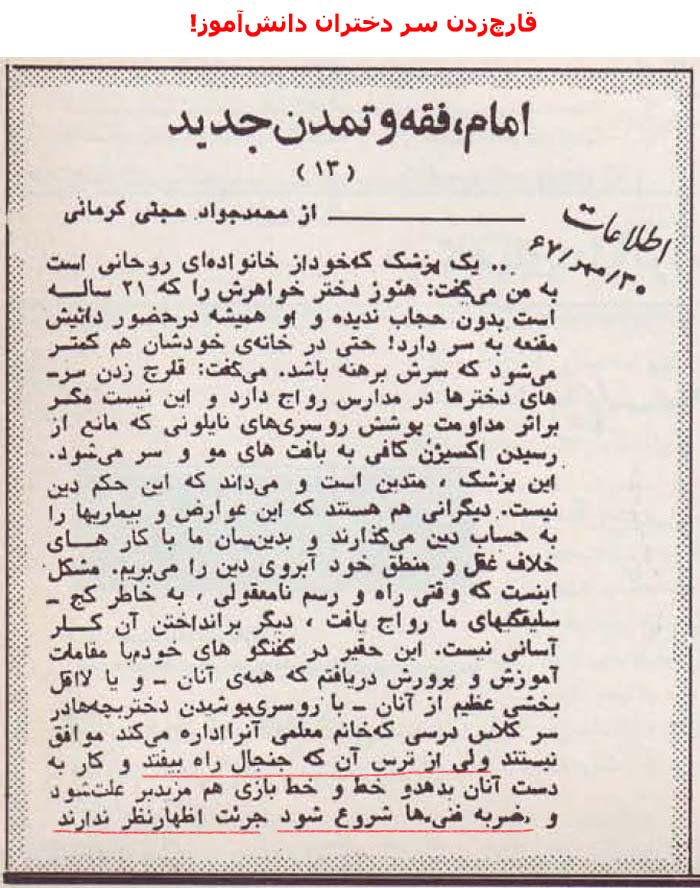 قارچ‌زدن سر دختران دانش‌آموز!
امام، فقه و تمدن جدید
(۱۳)
از محمدجواد حجتی کرمانی
اطلاعات
۳۰/مهر/۶۷
.. یک پزشک که‌خوداز خانواده‌ای روحانی است
به من می‌گفت: هنوز دختر خواهرش را که ۲۱ ساله
است بدون حجاب ندیده و او همیشه درحضور دائیش
مقنعه به سر دارد! حتی در خانه‌ی خودشان هم کمتر
می‌شود که سرش برهنه باشد. می‌گفت: قارچ زدن سر-
های دخترها در مدارس رواج دارد و این نیست مگر
براثر مداومت پوشش روسری‌های نایلونی که مانع از
رسیدن اکسیژن کافی به بافت های مو و سر می‌شود.
این پزشک ، متدین است و می‌داند که این حکم دین
نیست. دیگرانی هم هستند که این عوارض و بیماریها را
به حساب دین می‌گذارند و بدین‌سان ما با کار های
خلاف عقل و منطق خود آبروی دین را می‌بریم. مشکل
اینست که وقتی راه و رسم نامعقولی ، به خاطر کج -
سلیقگیهای ما رواج یافت ، دیگر برانداختن آن کار
آسانی نیست. این حقیر در گفتگو های خودم‌با مقامات
آموزش و پرورش دریافتم که همه‌ی آنان - و یا لااقل
بخشی عظیم از آنان - با روسری‌پوشیدن دختربچه‌هادر
سر کلاس درسی که‌خانم معلمی آنرااداره می‌کند موافق
نیستند ولی از ترس آن که جنجال راه بیفتد و کار به
دست آنان بدهدو خط و خط بازی هم مزیدبر علت‌شود
و ضربه فنی‌ها شروع شود جرئت اظهارنظر ندارند